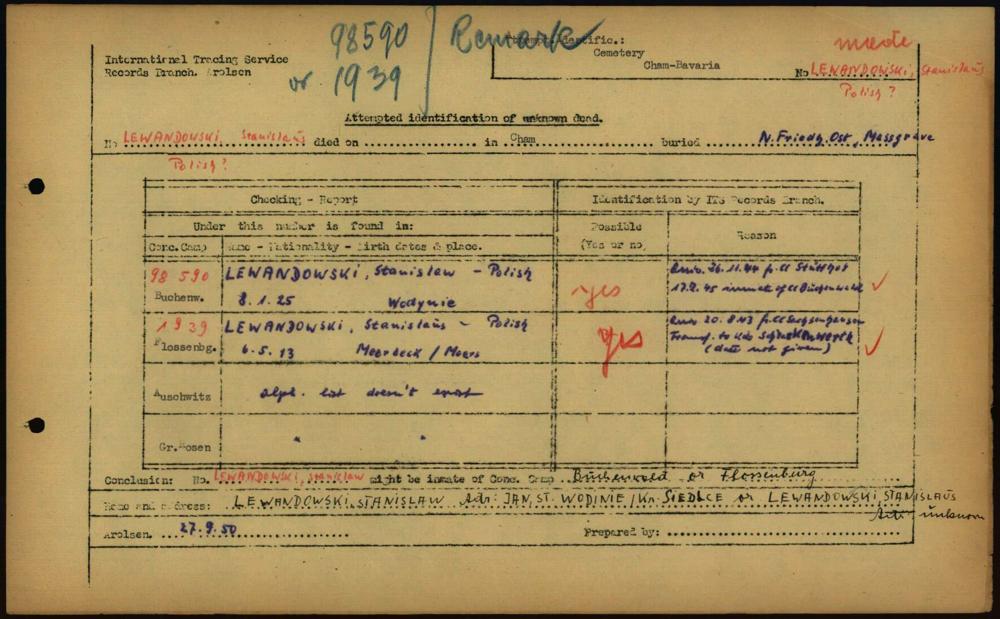 98590 Remark
or 1939
Attempt. identific.:
Cemetery
Cham-Bavaria
International Tracing Service
Records Branch. Arolsen
No LEWANDOWSKI, Stanislaus
Polish ?
Attempted identification of unknown dead.
No LEWANDOWSKI, Stanislaus died on .......... in Cham buried N. Friedh. Ost, Massgrave
Polish ?
Checking - Report
Identification by ITS Records Branch.
Under this number is found in:
Possible (Yes or no)
Reason
Conc.Camp
Name - Nationality - Birth dates & place.
98 590
Buchenw.
LEWANDOWSKI, Stanislaw - Polish
8.1.25 Wodynie
yes
26.11.44 fr. CC Stutthof
17.2.45 inmate of CC Buchenwald
1939
Flossenbg.
LEWANDOWSKI, Stanislaus - Polish
6.5.13 Meerbeck / Moers
Yes
20.8.43 fr. CC Sachsenhausen
Transf. to Kdo Schlackenwerth
(date not given)
Auschwitz
alph. list doesn't exist
Gr.Rosen
" "
Conclusion: No. LEWANDOWSKI, Stanislaw might be inmate of Conc. Camp Buchenwald or Flossenburg
Name and address: LEWANDOWSKI, STANISLAW Adr: JAN, ST. WODINIE / Kr. SIEDLCE or LEWANDOWSKI, STANISLAUS
Adr: unknown
Arolsen. 27.9.50
Prepared by: ..........